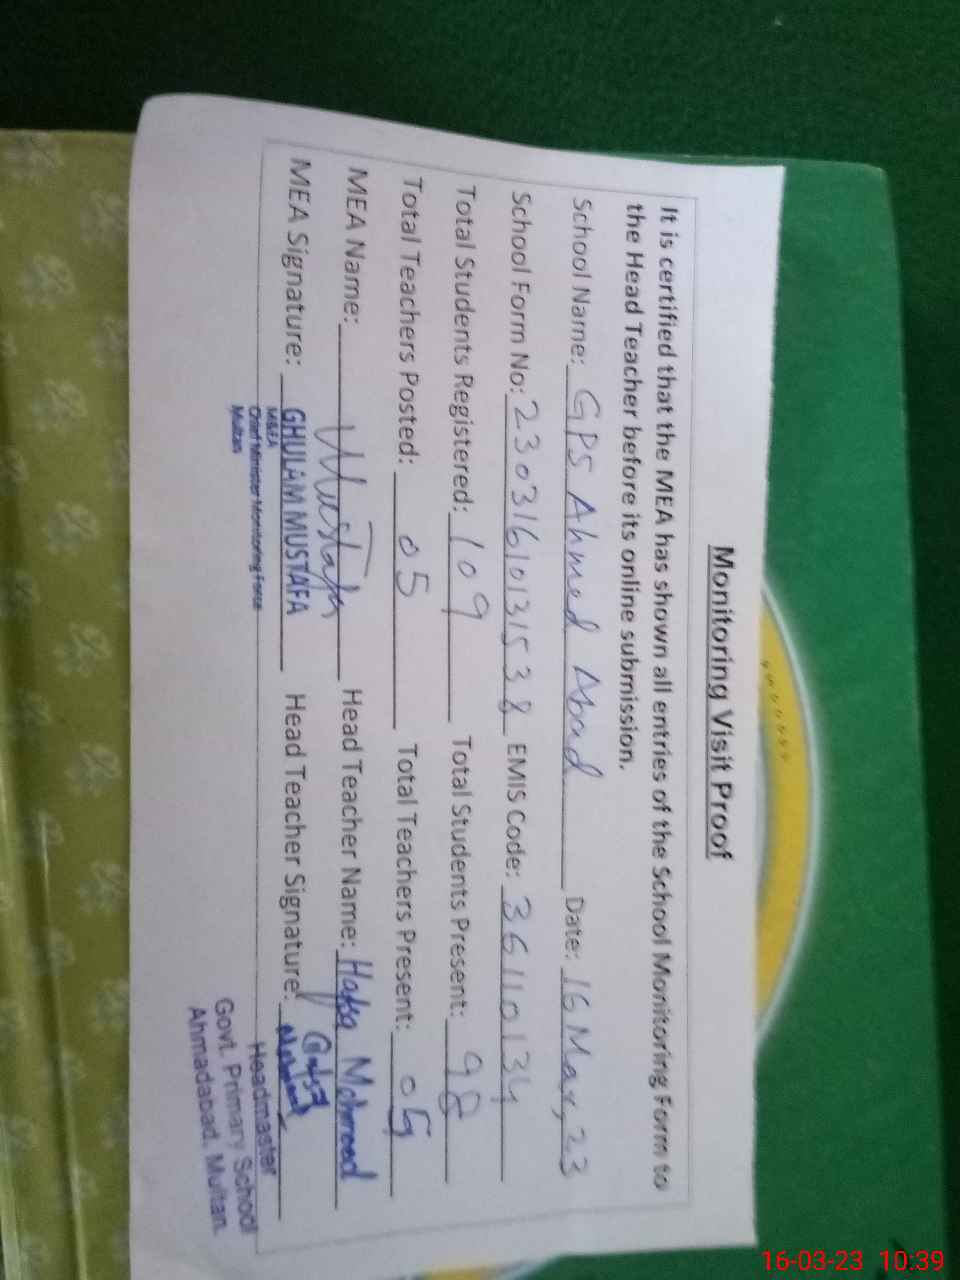 Monitoring Visit Proof
It is certified that the MEA has shown all entries of the School Monitoring Form to
the Head Teacher before its online submission.
School Name: GPS Ahmed Abad Date: 16 Mar, 23
School Form No: 23031610131538 EMIS Code: 36110134
Total Students Registered: 109 Total Students Present: 98
Total Teachers Posted: 05 Total Teachers Present: 05
MEA Name: Mustafa Head Teacher Name: Hafsa Mehmood
MEA Signature: GHULAM MUSTAFA Head Teacher Signature:
M&EA
Chief Minister Monitoring Force
Multan
Headmaster
Govt. Primary School
Ahmadabad, Multan.
16-03-23 10:39